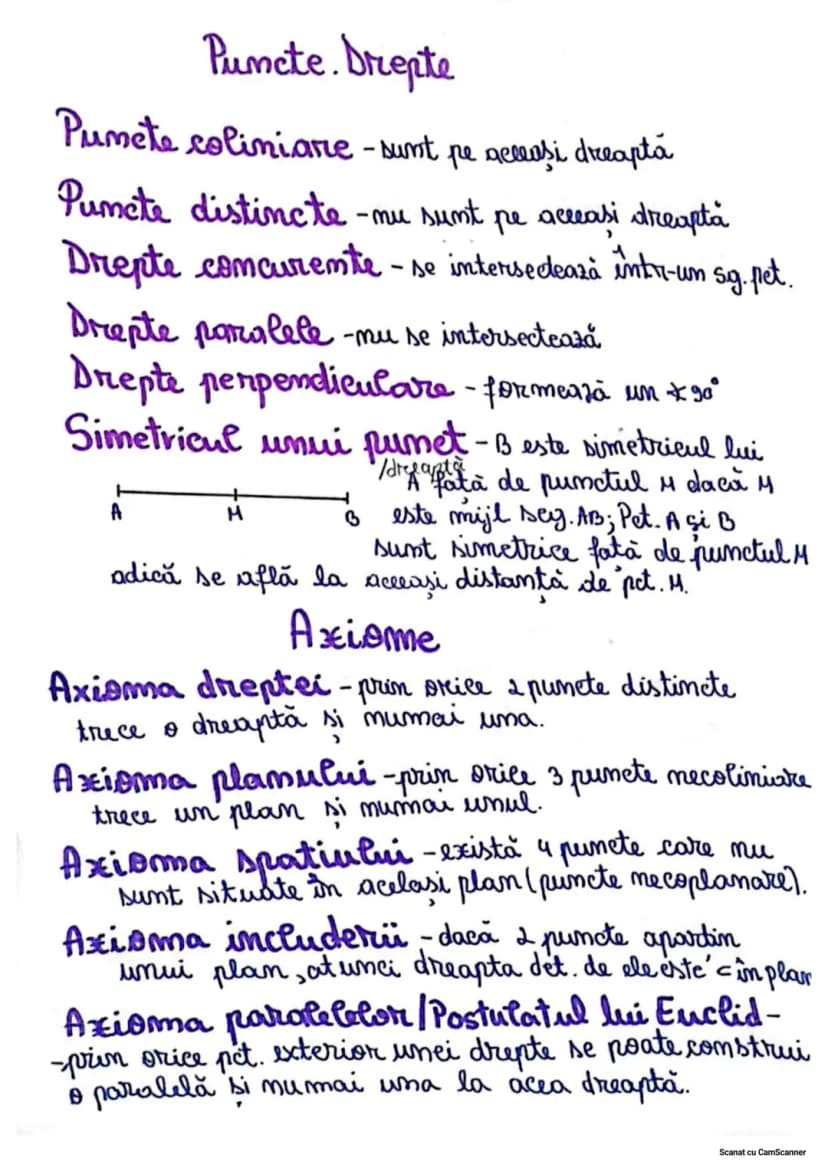 Puncte. Drepte
Puncte coliniare - sunt pe aceeași dreaptă
Puncte distincte - nu sunt pe aceeași dreaptă
Drepte concurente - se intersectează într-un sg. pct.
Drepte paralele - nu se intersectează
Drepte perpendiculare - formează un ∢ 90°
Simetricul unui punct - B este simetricul lui
/dreaptă
A față de punctul M dacă M
A M B este mijl seg. AB; Pct. A și B
sunt simetrice față de punctul M
adică se află la aceeași distanță de pct. M.
Axiome
Axioma dreptei - prin orice 2 puncte distincte
trece o dreaptă și numai una.
Axioma planului - prin orice 3 puncte necoliniare
trece un plan și numai unul.
Axioma spatiului - există 4 puncte care nu
sunt situate în același plan (puncte necoplanare).
Axioma includerii - dacă 2 puncte apartin
unui plan, atunci dreapta det. de ele este ⊂ în plan
Axioma paralelelor/Postulatul lui Euclid -
- prin orice pct. exterior unei drepte se poate construi
o paralelă și numai una la acea dreaptă.
Scanat cu CamScanner